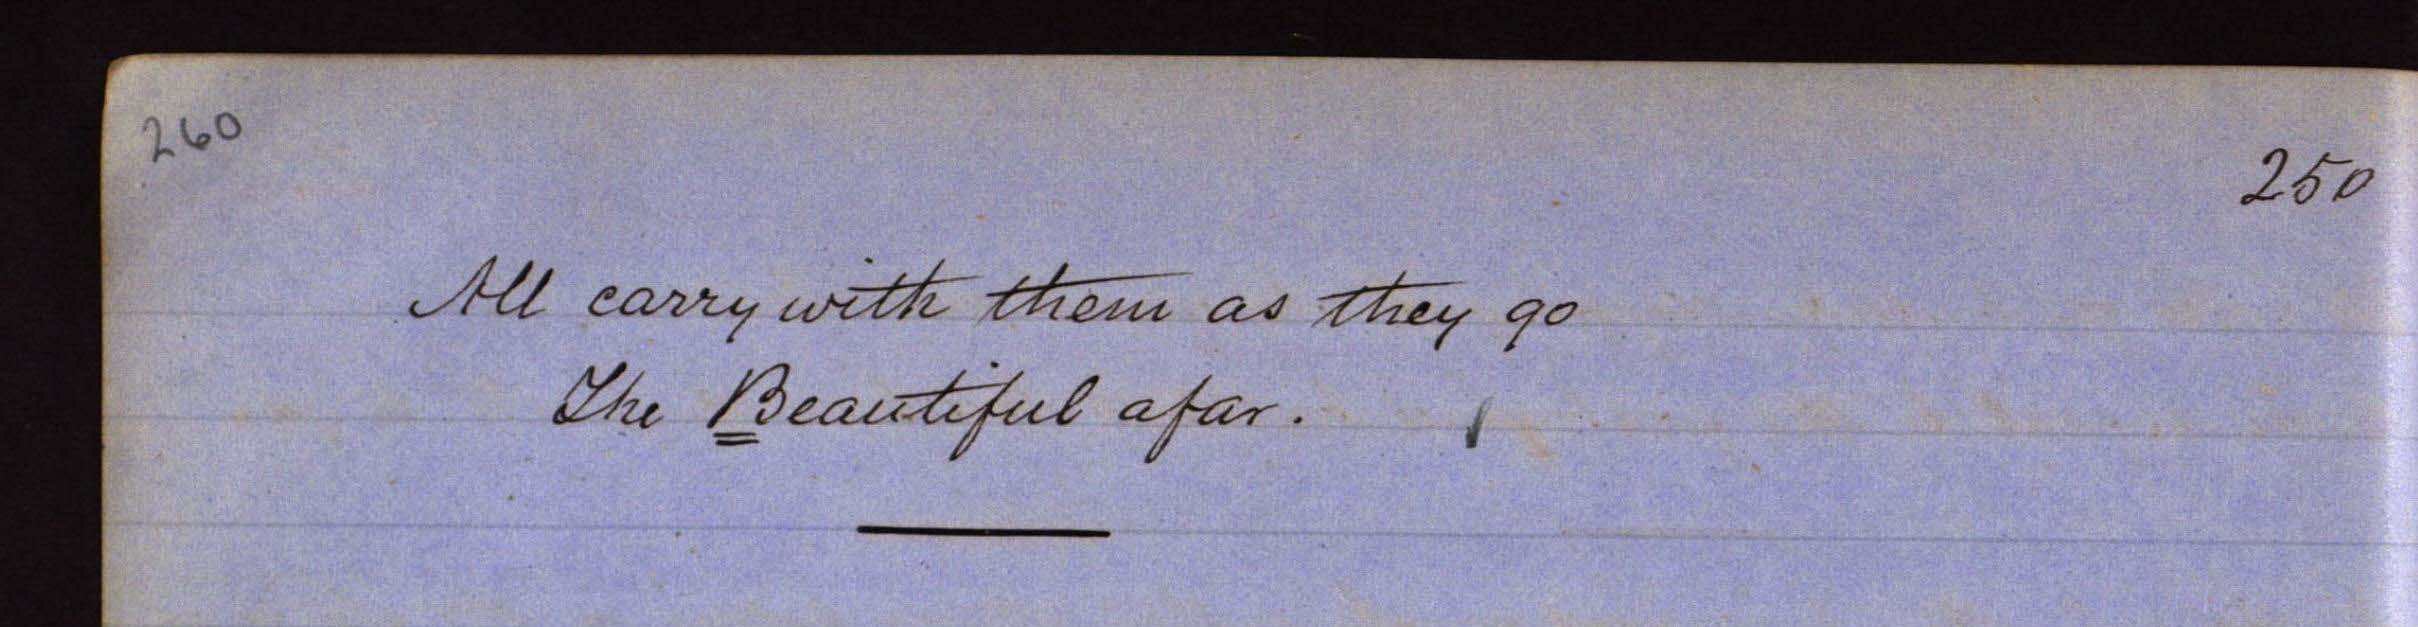 260
250
All carry with them as they go
The Beautiful afar.